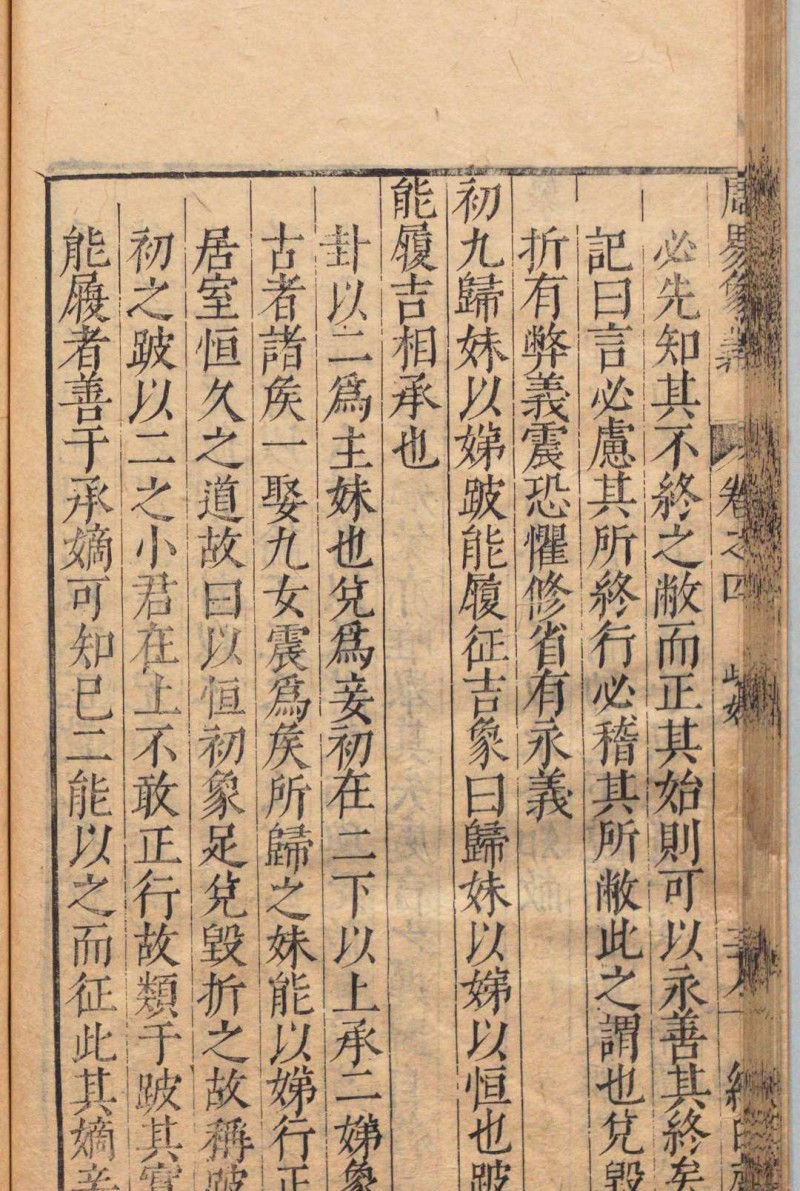 周易象義 卷之四
必先知其不終之敝而正其始則可以永善其終矣
記曰言必慮其所終行必稽其所敝此之謂也兌毀
折有弊義震恐懼修省有永義
初九歸妹以娣跛能履征吉象曰歸妹以娣以恒也跛
能履吉相承也
卦以二爲主妹也兌爲妾初在二下以上承二娣象
古者諸矦一娶九女震爲矦所歸之妹能以娣行正
居室恒久之道故曰以恒初象足兌毀折之故稱跛
初之跛以二之小君在上不敢正行故類于跛其實
能履者善于承嫡可知已二能以之而征此其嫡妾